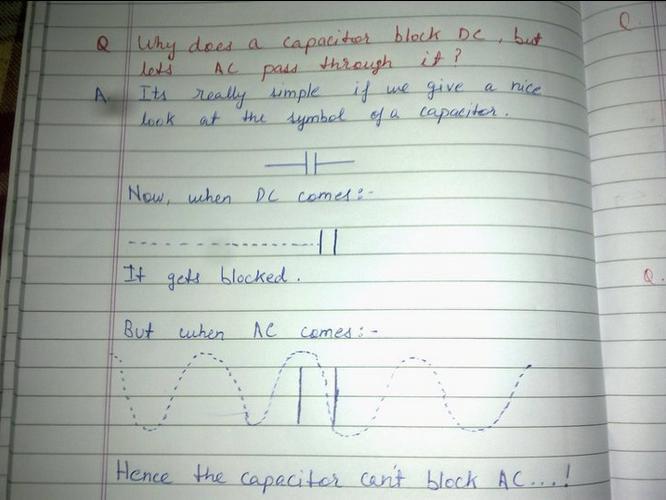 Q.
Q Why does a capacitor block DC, but
lets AC pass through it?
A Its really simple if we give a nice
look at the symbol of a capacitor.
Now, when DC comes:-
It gets blocked.
Q.
But when AC comes:-
Hence the capacitor can't block AC...!